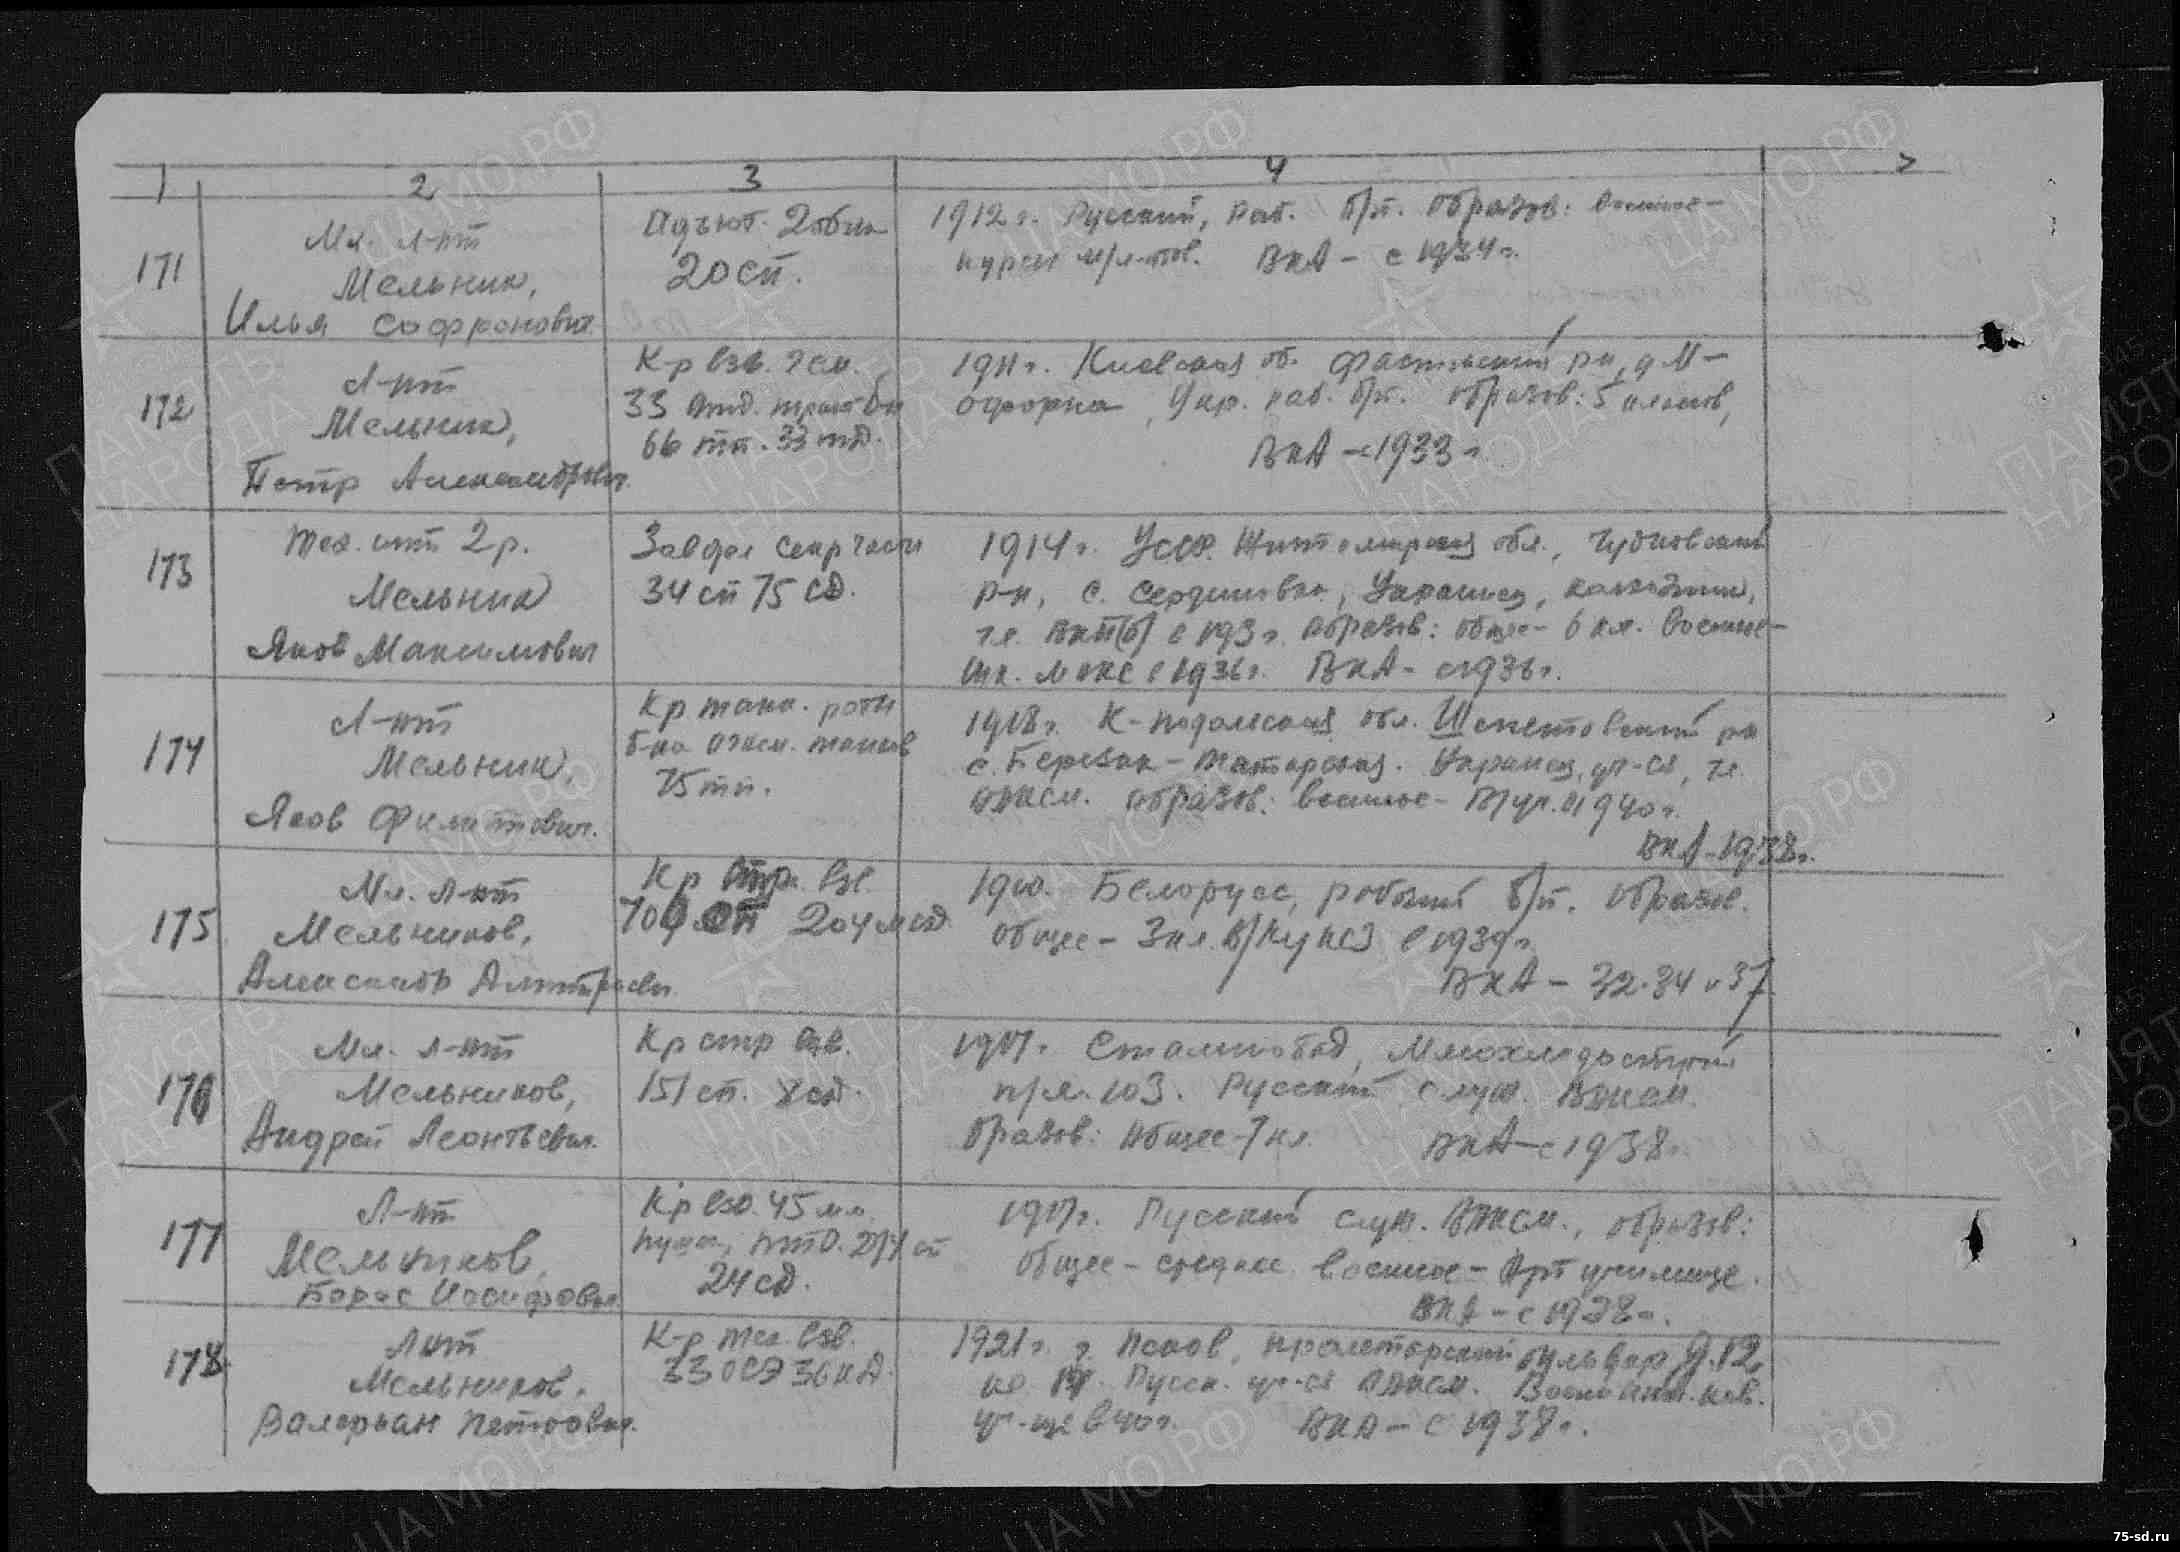 1 2 3 4
171
Мл. л-нт
Мельник,
Илья Софронович
Адъют. 2 обил
20 сп.
1912 г. Русский, раб. б/п. образов: военное-
курсы м/л-тов. ВКА - с 1934 г.
172
Л-нт
Мельник,
Петр Александрович
К-р взв.
33 отд. трансп бн
66 тп. 33 тд.
1911 г. Киевская об. Фастовский рн, д М-
Офорна, Укр. раб. б/п. образов: 5 классов,
ВКА - с 1933 г.
173
Тех. инт 2 р.
Мельник
Яков Максимович
Завдел секр части
34 сп 75 сд.
1914 г. УССР. Житомирская обл., Чудновский
р-н, с. Сердиловка, Украинец,
чл. ВКП(б) с 193 г. образов: общее- 6 кл. военное-
шк. МАКС с 1936 г. ВКА - с 1936 г.
174
Л-нт
Мельник,
Яков Филиппович.
К-р танк. роты
б-на огнем. танков
75 тп.
1918 г. К-Подолская обл. Шепетовский рн
с. Березна - Татарская. Украинец, уч-ся, чл.
ВЛКСМ. образов: военное- БТ уч. с 1940 г.
ВКА - 1938 г.
175
Мл. л-нт
Мельников,
Александр Дмитриевич
К-р стр. вз.
700 сп 204 мсд
1910. Белорусс, рабочий б/п. Образов.
общее - 3 кл. в/ КУКСЗ с 1939 г.
ВКА - 32-34 и 37
176
Мл. л-нт
Мельников,
Андрей Леонтьевич.
К-р стр взв.
151 сп. 8 сд.
1917 г. Сталинобад,
п/я. 103. Русский служ. ВЛКСМ.
Образов: общее - 7 кл. ВКА - с 1938 г.
177
Л-нт
Мельников,
Борис Иосифович
К-р взв. 45 мм
пушек, ПТО. 274 сп
24 сд.
1917 г. Русский служ. ВЛКСМ., образов:
общее - среднее военное - Арт училище.
ВКА - с 1938 г.
178
Лнт
Мельников.
Валерьан Петрович.
К-р тех. взв.
33 ОСЭ 36 кд.
1921 г. г. Псков, Пролетарский бульвар д. 12,
кв 14. Русск. уч-ся ВЛКСМ.
уч-ще в 40 г. ВКА - с 1938 г.
ПАМЯТЬ НАРОДА
ЦА МО.РФ
75-sd.ru